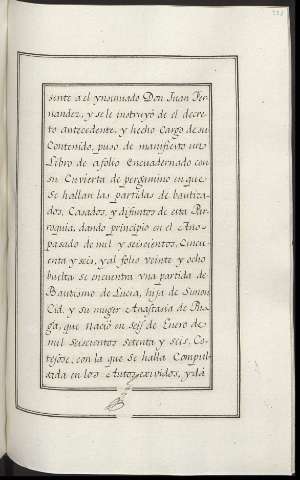 sente a el ynsinuado Don Juan Fer-
nandez, y se le instruyó de el decre
to antecedente, y hecho Cargo de su
Contenido, puso de manifiesto uno
Libro de a folio Encuadernado con
su Cuvierta de pergamino en que
Se hallan las partidas de bautiza-
dos, Casados, y difuntos de esta Par-
roquia, dando principio en el Año
pasado de mil y seiscientos, Cincu
enta y seis, y al folio veinte y ocho
buelta se encuentra vna partida de
Bautismo de Lucia, hija de Simon
Cid, y su muger Anastasia de
que Nació en seis de Enero de
mil Seiscientos Setenta y Seis, Co-
tejose, con la que Se halla Compul-
sada en los Autos y dá